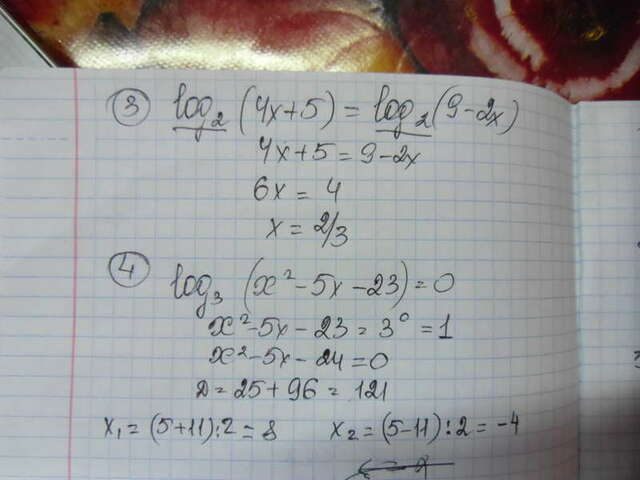 ③ log₂ (4x+5) = log₂ (9-2x)
4x+5 = 9-2x
6x = 4
x = 2/3
④ log₃ (x²-5x-23) = 0
x²-5x-23 = 3⁰ = 1
x²-5x-24=0
D=25+96=121
x₁=(5+11):2=8 x₂=(5-11):2=-4